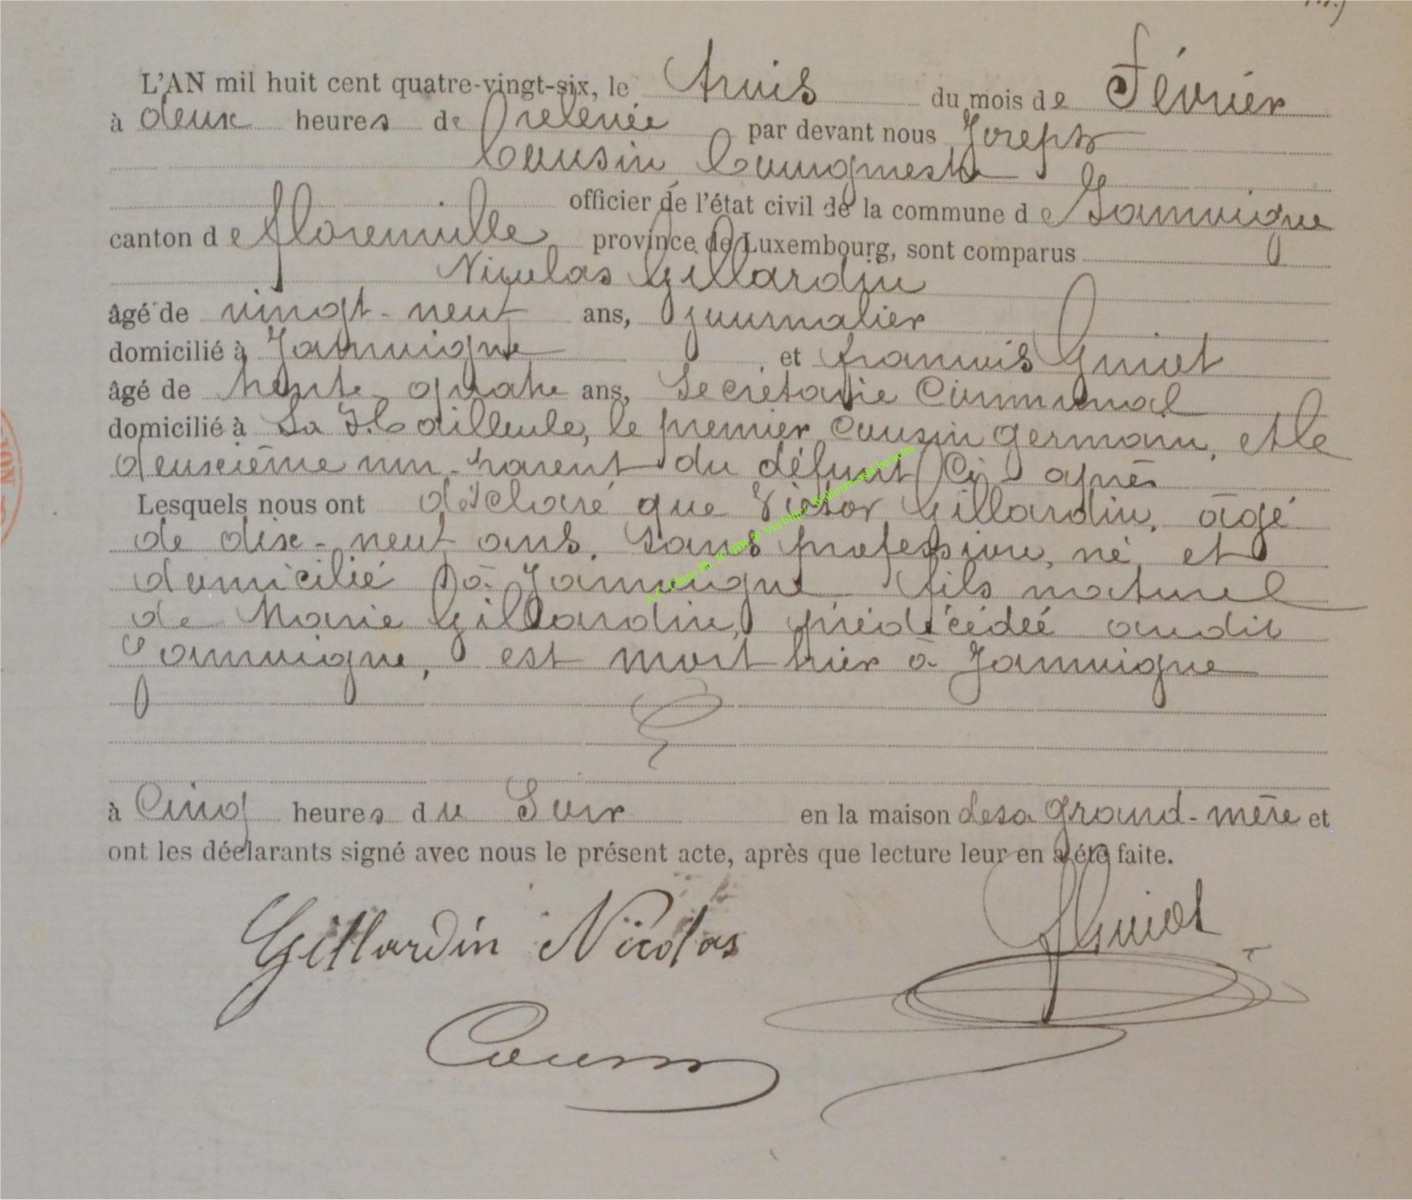 L'AN mil huit cent quatre-vingt-six, le trois du mois de Février
à deux heures de relevée par devant nous Joseph
Cousin Bourgmestre
officier de l'état civil de la commune de Jamoigne
canton de florenville province de Luxembourg, sont comparus
Nicolas Gillardin
âgé de vingt-neuf ans, journalier
domicilié à Jamoigne et francois Guiot
âgé de trente quatre ans, Secrétaire Communal
domicilié à le premier Cousin germain, et le
deuxième non-parent du défunt Ci après
Lesquels nous ont déclaré que Victor Gillardin, âgé
de dix-neuf ans, sans profession, né et
domicilié à Jamoigne fils naturel
de Marie Gillardin, prédécédée audit
Jamoigne, est mort hier à Jamoigne
à Cinq heures du Soir en la maison de sa grand-mère et
ont les déclarants signé avec nous le présent acte, après que lecture leur en a été faite.
Gillardin Nicolas
Guiot
Cousin